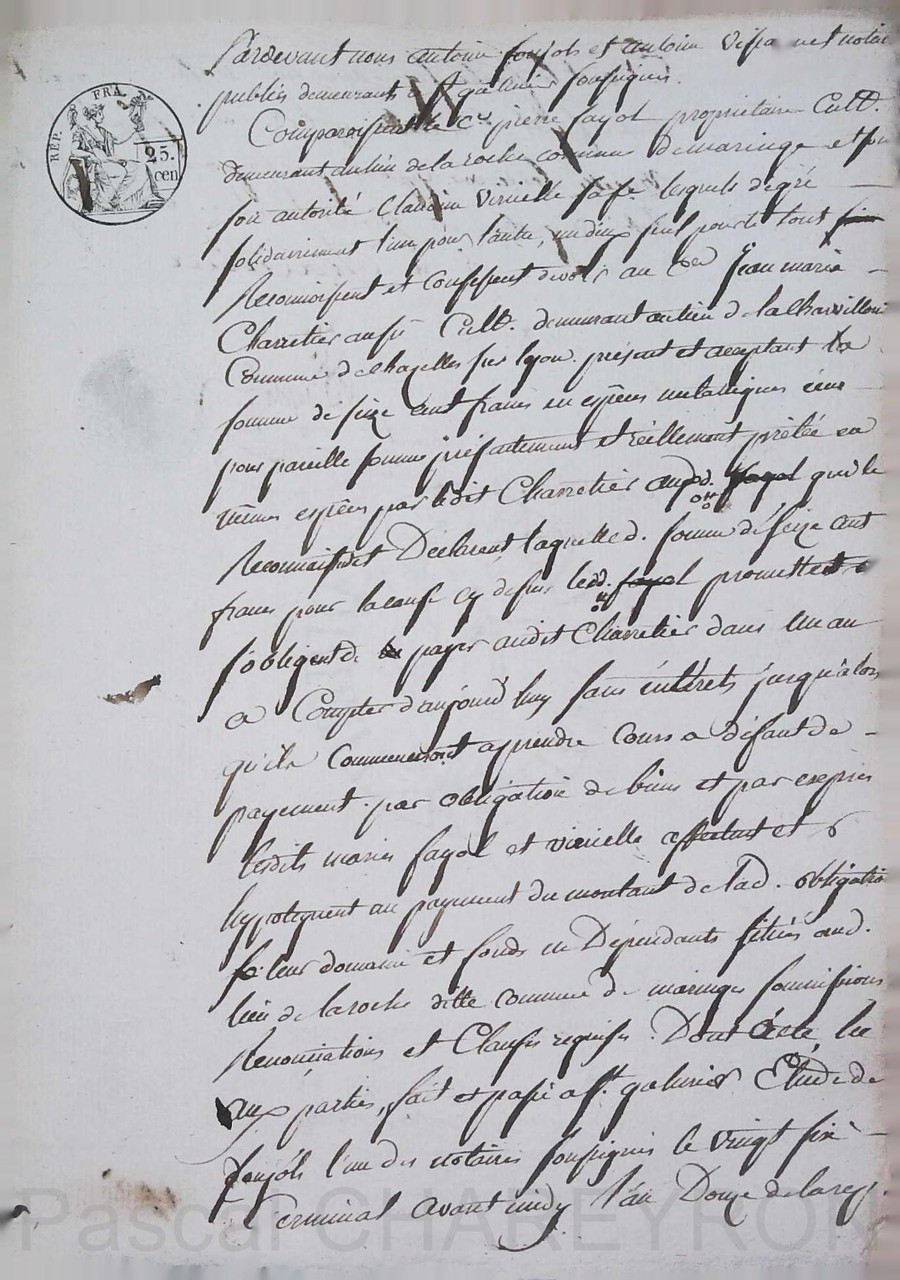 REP. FRA.
25.
cen
Pardevant nous antoine foujols et antoine Vissa net notair
publics demeurants a St galmier soussignés.
Comparoissent le Cen pierre fayol propriétaire Cult.
demeurant au lieu de la roche commune de maringe et sous
son autorité Claudine Virielle sa fe. lesquels de gré
solidairement l'un pour l'autre, un deux seul pour le tout
Reconnoissent et Confessent devoir au Cen Jean marie
Charretier aussi Cult. demeurant au lieu de la
Commune de chazelles sur lyon présent et acceptant la
somme de seize cent francs en espèces métalliques
pour pareille somme préfaitement et réellement prêtée en
mêmes espèces par le dit Charretier auxd. fayol qui le
Reconnaissent Déclarent laquelle d. somme de seize cent
francs pour la cause cy dessus lesd. fayol promettent
s'obligent de payer audit Charretier dans un an
a Compter d'aujourd'huy sans intérêts jusqu'alors
qu'ils Commenceront a prendre Cours a défaut de
payement. par obligation de biens et par exprès
lesdits mariés fayol et virielle affectent et
hypotequent au payement du montant de lad. obligatio
leur domaine et fonds en Dépendants situés aud.
lieu de la roche ditte commune de maringes soumissions
Renonciations et Clauses requises. Dont acte, lu
aux parties, fait et passé a St. galmier Etude de
foujols l'un des notaires soussignés le vingt six
Germinal avant midy l'an Douze de la rep.
Pascal CHAREYRON